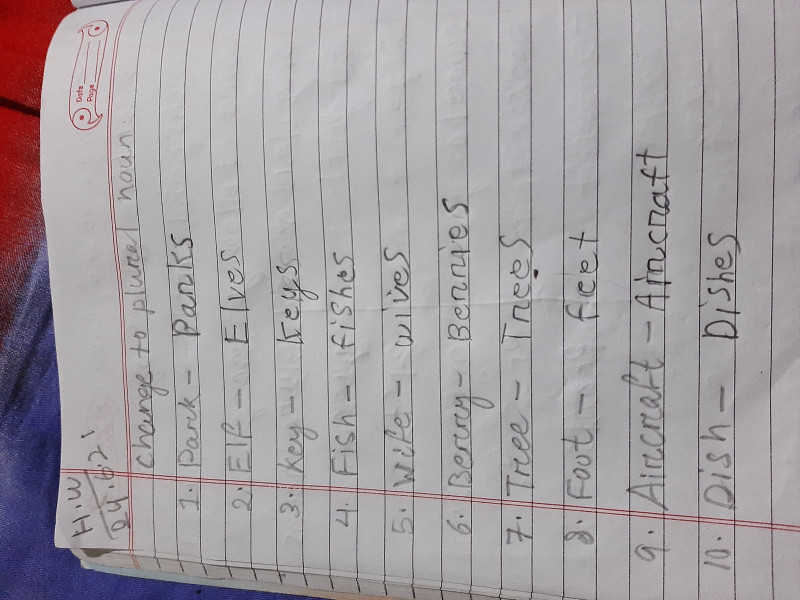 Date
Page
H.W
24.6.21
change to plural noun:
1. Park - Parks
2. Elf - Elves
3. Key - Keys
4. Fish - fishes
5. Wife - wives
6. Berry - Berries
7. Tree - Trees
8. Foot - feet
9. Aircraft - Aircraft
10. Dish - Dishes